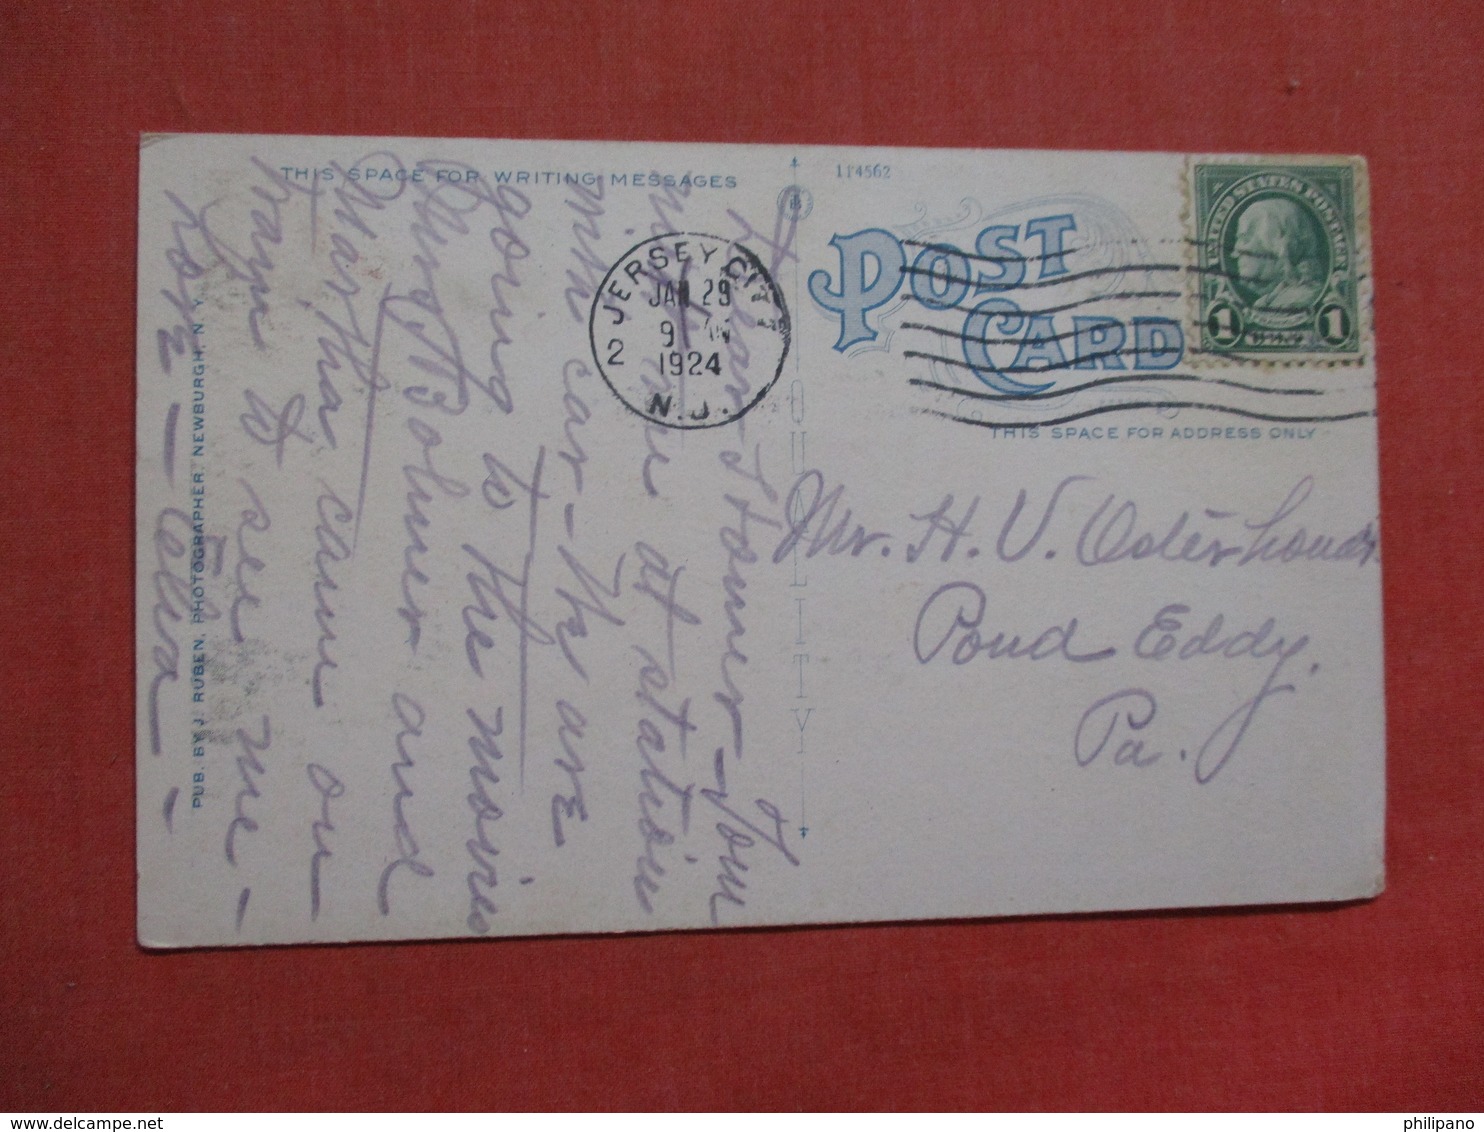 THIS SPACE FOR WRITING MESSAGES
114562
POST
CARD
UNITED STATES POSTAGE
1 1
JERSEY CITY
JAN 29
9
1924
2
N.J.
THIS SPACE FOR ADDRESS ONLY
Mr. H. V. Osterhoudt
Pond Eddy.
Pa.
Dear Homer - Tom
will me at station
with car - We are
going to the movies
Bohmer and
Martha came on
train to see me -
Love - Alva -
QUALITY
PUB. BY J. RUBEN, PHOTOGRAPHER, NEWBURGH, N. Y.
delcampe.net
philipano